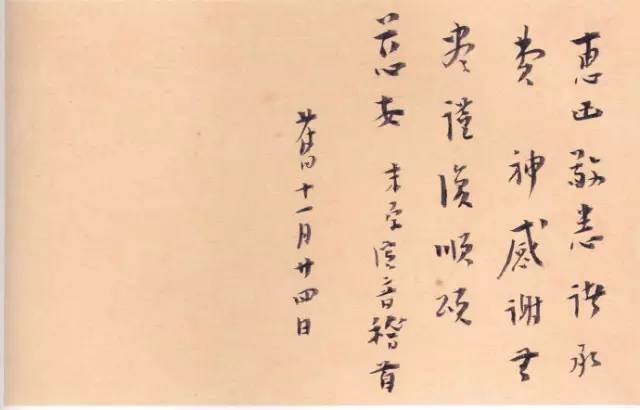 惠函敬悉諸承
費神感謝無
盡謹復順頌
慈安 末學演音稽首
舊十一月廿四日